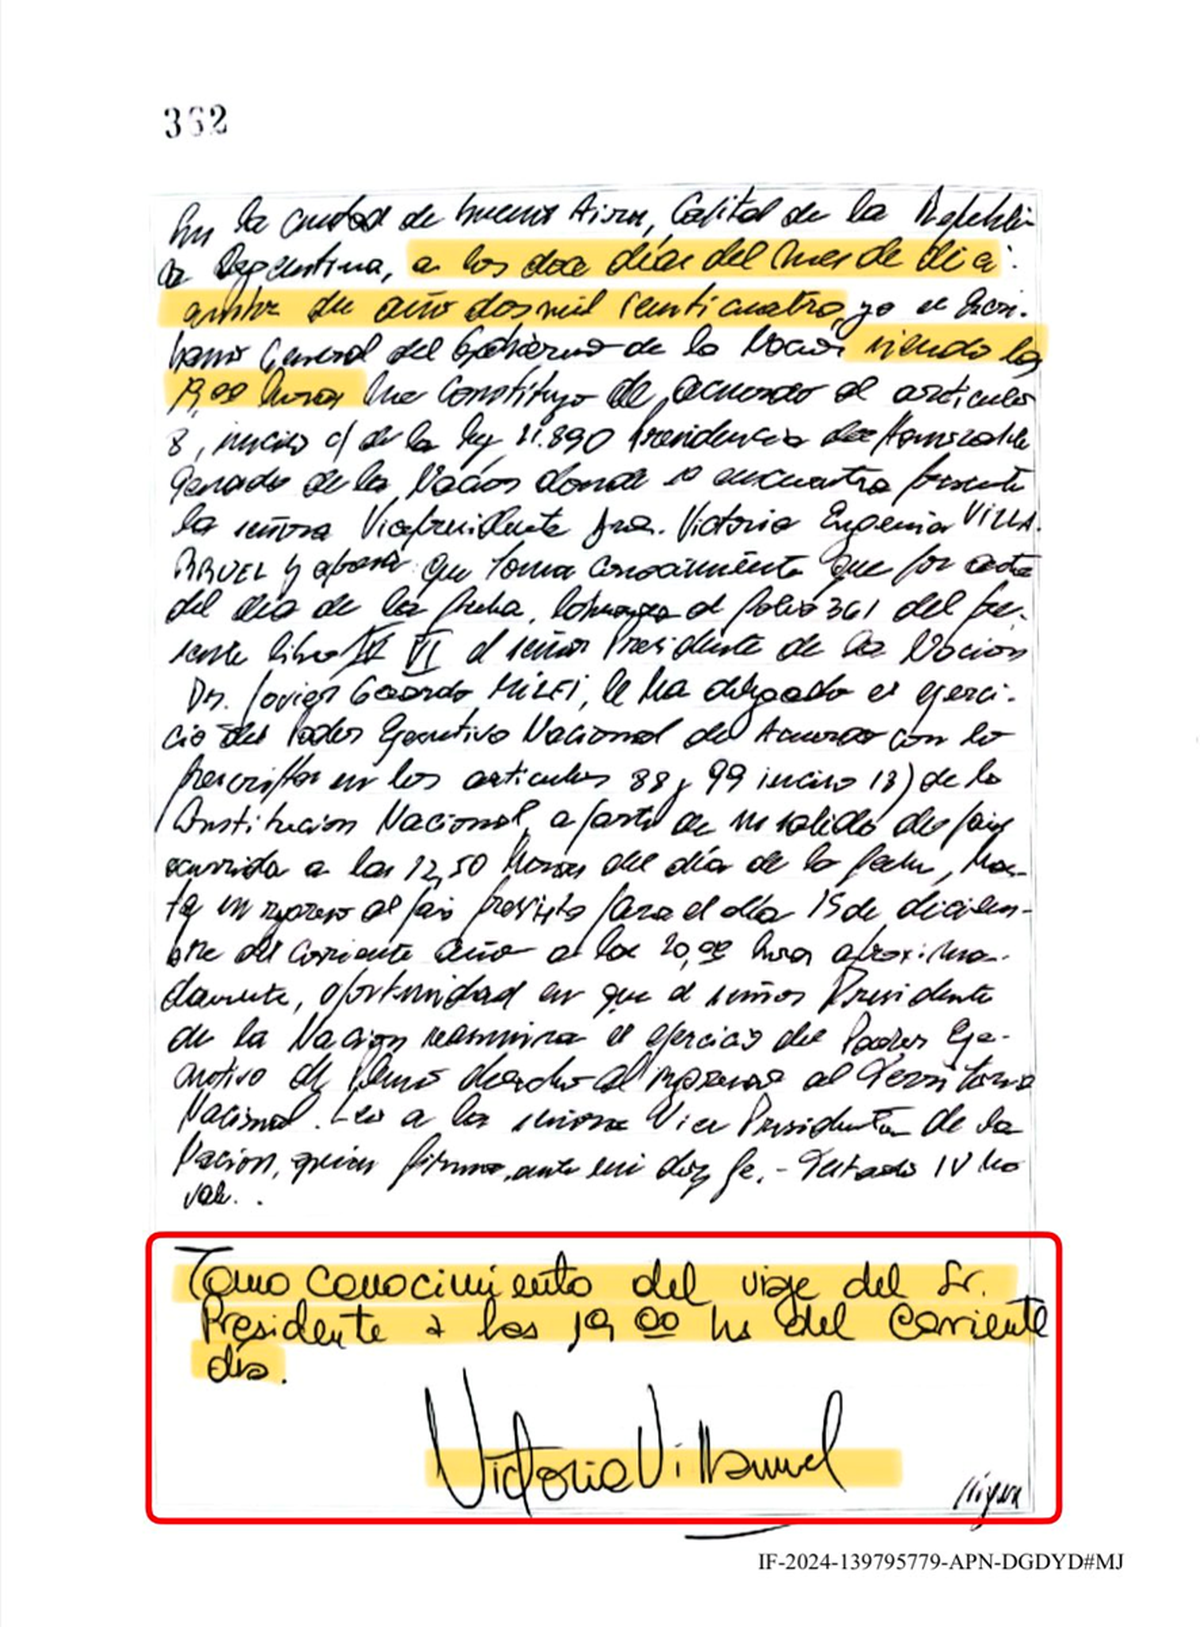 362
En la ciudad de Buenos Aires, Capital de la Repúbli-
ca Argentina, a los doce días del mes de dici-
embre de año dos mil veinticuatro, yo el Escri-
bano General del Gobierno de la Nación siendo las
19,00 horas me constituyo de acuerdo al artículo
8, inciso c/ de la ley 21.890 Presidencia del Honorable
Senado de la Nación donde se encuentra presente
la señora Vicepresidente Dra. Victoria Eugenia VILLA-
RRUEL y que toma conocimiento que por acta
del día de la fecha, al folio 361 del pre-
sente libro IV VI el señor Presidente de la Nación
Dr. Javier Gerardo MILEI, le ha delegado el ejerci-
cio del Poder Ejecutivo Nacional de Acuerdo con lo
prescripto en los artículos 88 y 99 inciso 18) de la
Constitución Nacional, a partir de su salida del país
ocurrida a las 12,50 horas del día de la fecha, has-
ta su regreso al país previsto para el día 15 de diciem-
bre del corriente año a las 20,00 horas aproxima-
damente, oportunidad en que el señor Presidente
de la Nación reasumirá el ejercicio del Poder Eje-
cutivo de pleno derecho al ingresar al Territorio
Nacional. Leo a la señora Vice Presidenta de la
Nación, quien firma, ante mi doy fe.- Testado IV no
vale..
Tomo conocimiento del viaje del Sr.
Presidente a las 19,00 hs del corriente
día.
Victoria Villarruel
IF-2024-139795779-APN-DGDYD#MJ